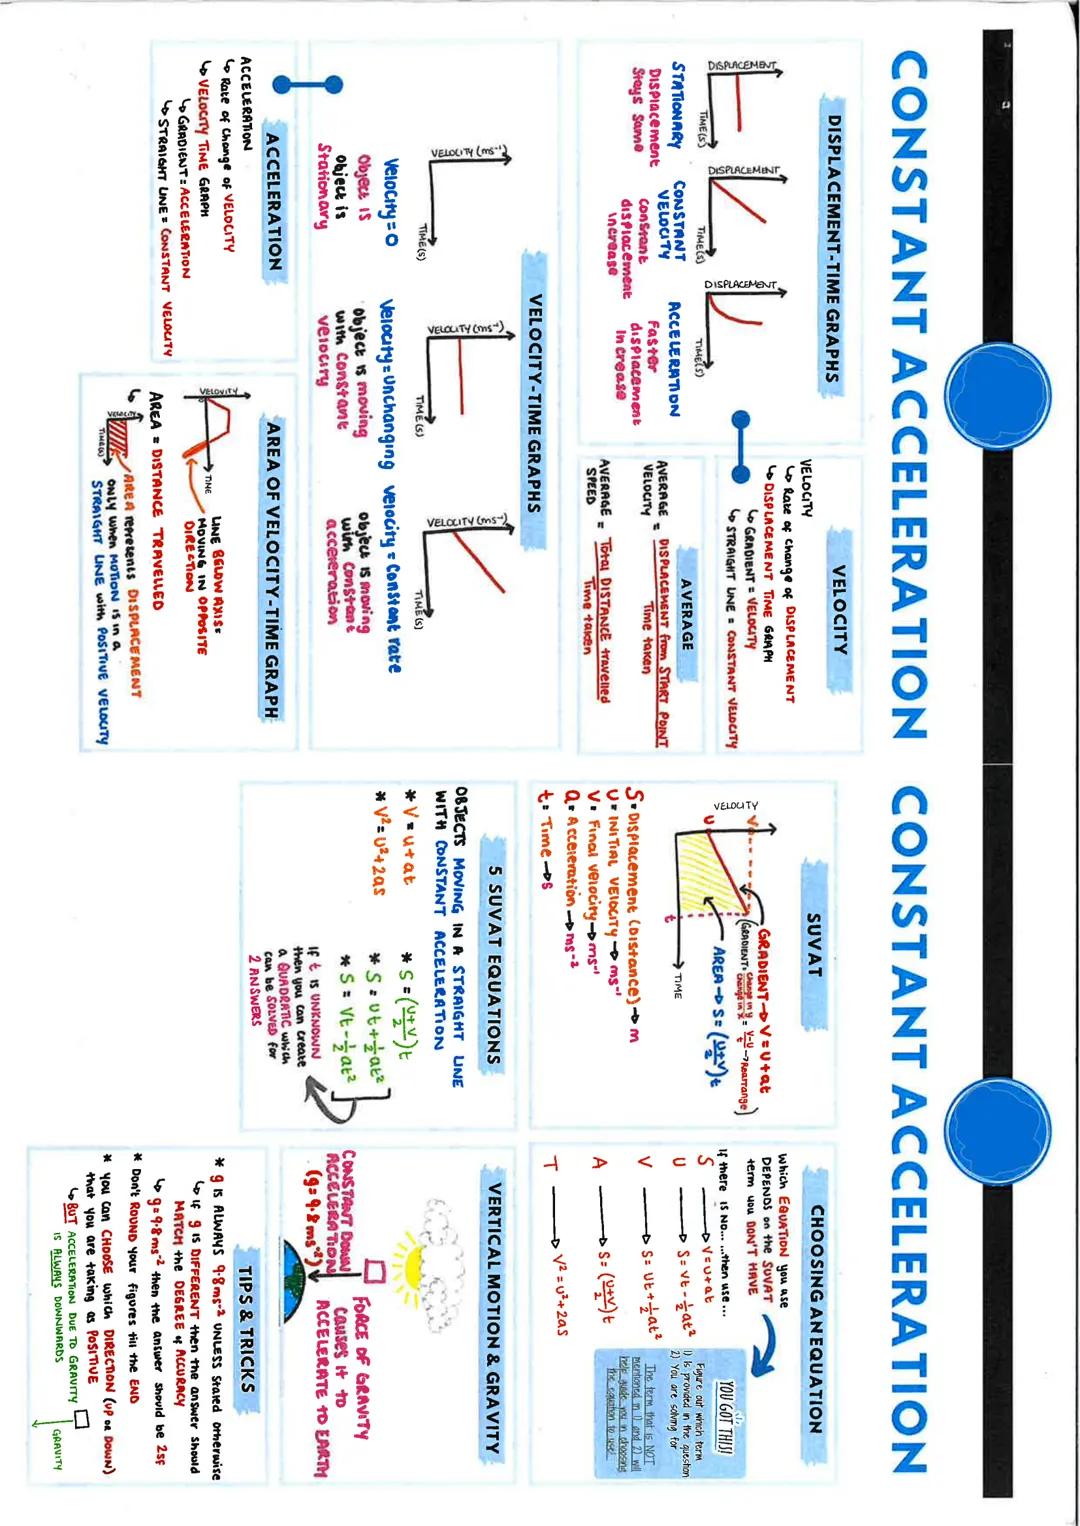 CONSTANT ACCELERATION
DISPLACEMENT-TIME GRAPHS
DISPLACEMENT
TIME(S)
STATIONARY
DISPLACEMENT
Stays Same
DISPLACEMENT
TIME(S)
CONSTANT
VELOCITY
constant
displacement
increase
DISPLACEMENT
TIME(S)
ACCELERATION
Faster
displacement
increase
VELOCITY
VELOCITY
↳ Rate of change of DISPLACEMENT
↳ DISPLACEMENT TIME GRAPH
↳ GRADIENT = VELOCITY
↳ STRAIGHT LINE = CONSTANT VELOCITY
AVERAGE
AVERAGE VELOCITY = DISPLACEMENT from START POINT
Time taken
AVERAGE SPEED = Total DISTANCE travelled
Time taken
VELOCITY-TIME GRAPHS
VELOCITY (ms⁻¹)
TIME(S)
Velocity = 0
Object is
Object is
Stationary
VELOCITY (ms⁻¹)
TIME(S)
Velocity = Unchanging
Object is moving
with constant
velocity
VELOCITY (ms⁻¹)
TIME(S)
Velocity = Constant rate
Object is moving
with constant
acceleration
ACCELERATION
ACCELERATION
↳ Rate of Change of VELOCITY
↳ VELOCITY TIME GRAPH
↳ GRADIENT = ACCELERATION
↳ STRAIGHT LINE = CONSTANT VELOCITY
AREA OF VELOCITY-TIME GRAPH
VELOCITY
TIME
LINE BELOW AXIS =
MOVING IN OPPOSITE
DIRECTION
AREA = DISTANCE TRAVELLED
↳
VELOCITY
TIME(S)
AREA represents DISPLACEMENT
only when MOTION is in a
STRAIGHT LINE with POSITIVE VELOCITY
CONSTANT ACCELERATION
SUVAT
VELOCITY
V
U
t
TIME
GRADIENT → V = u + at
(GRADIENT = change in y / change in x = V-U / t → Rearrange)
AREA → S = (u+v/2)t
S = Displacement (Distance) → m
U = INITIAL VELOCITY → ms⁻¹
V = Final velocity → ms⁻¹
a = Acceleration → ms⁻²
t = Time → s
CHOOSING AN EQUATION
Which EQUATION you use
DEPENDS on the SUVAT
term you DON'T HAVE
If there is NO... ...then use ...
S → V = u + at
U → S = vt - ½at²
V → S = ut + ½at²
A → S = (u+v/2)t
T → V² = u² + 2as
YOU GOT THIS!
Figure out which term
1) Is provided in the question
2) You are solving for
The term that is NOT
mentioned in 1) and 2) will
help guide you in choosing
the equation to use!
5 SUVAT EQUATIONS
OBJECTS MOVING IN A STRAIGHT LINE
WITH CONSTANT ACCELERATION
* V = u + at
* S = (u+v/2)t
* V² = u² + 2as
* S = ut + ½at²
* S = Vt - ½at²
If t is UNKNOWN
then you can create
a QUADRATIC which
can be SOLVED for
2 ANSWERS
VERTICAL MOTION & GRAVITY
CONSTANT DOWN
ACCELERATION
(g = 9.8 ms⁻²)
FORCE OF GRAVITY
causes it to
ACCELERATE TO EARTH
TIPS & TRICKS
* g is ALWAYS 9.8 ms⁻² UNLESS Stated otherwise
↳ if g is DIFFERENT then the answer should
MATCH the DEGREE of ACCURACY
↳ g = 9.8 ms⁻² then the answer should be 2sf
* Don't ROUND your figures till the END
* you can CHOOSE which DIRECTION (UP or DOWN)
that you are taking as POSITIVE
↳ BUT ACCELERATION DUE TO GRAVITY
IS ALWAYS DOWNWARDS
GRAVITY